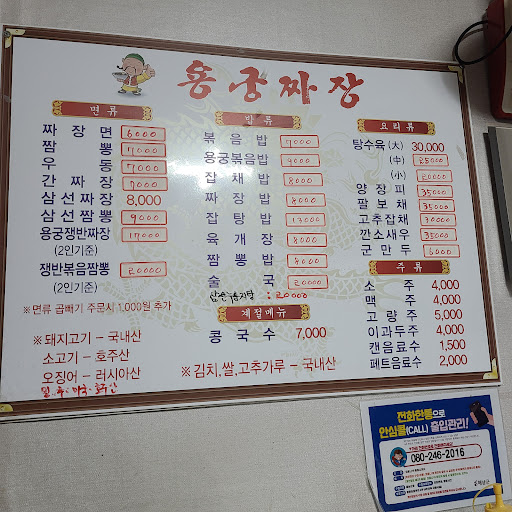 용궁짜장
면류
짜장면 6000
짬뽕 7000
우동 7000
간짜장 7000
삼선짜장 8,000
삼선짬뽕 9000
용궁쟁반짜장 17000
(2인기준)
쟁반볶음짬뽕 20000
(2인기준)
※면류 곱빼기 주문시 1,000원 추가
※돼지고기 - 국내산
소고기 - 호주산
오징어 - 러시아산
밥류
볶음밥 7000
용궁볶음밥 9000
잡채밥 8000
짜장밥 8000
잡탕밥 13000
육개장 8000
짬뽕밥 8000
술국 20000
: 20000
계절메뉴
콩국수 7,000
※김치,쌀,고추가루 - 국내산
요리류
탕수육(大) 30,000
(中) 25000
(小) 20000
양장피 35000
팔보채 35000
고추잡채 30000
깐소새우 35000
군만두 6000
주류
소주 4,000
맥주 4,000
고량주 5,000
이과두주 4,000
캔음료수 1,500
페트음료수 2,000
전화한통으로
안심콜(CALL) 출입관리!
080-246-2016